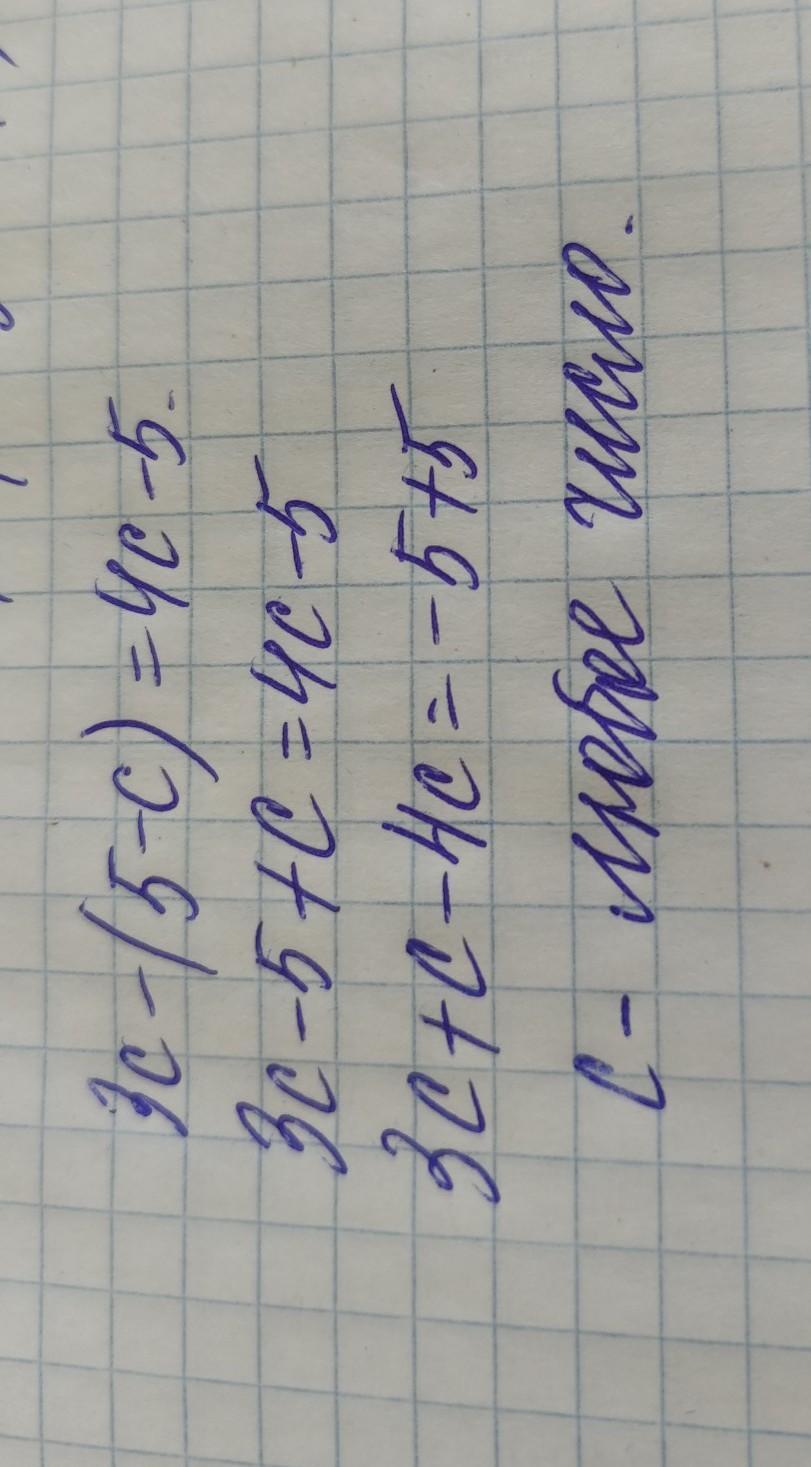 3c-(5-c)=4c-5.
3c-5+c=4c-5
3c+c-4c=-5+5
c- любое число.